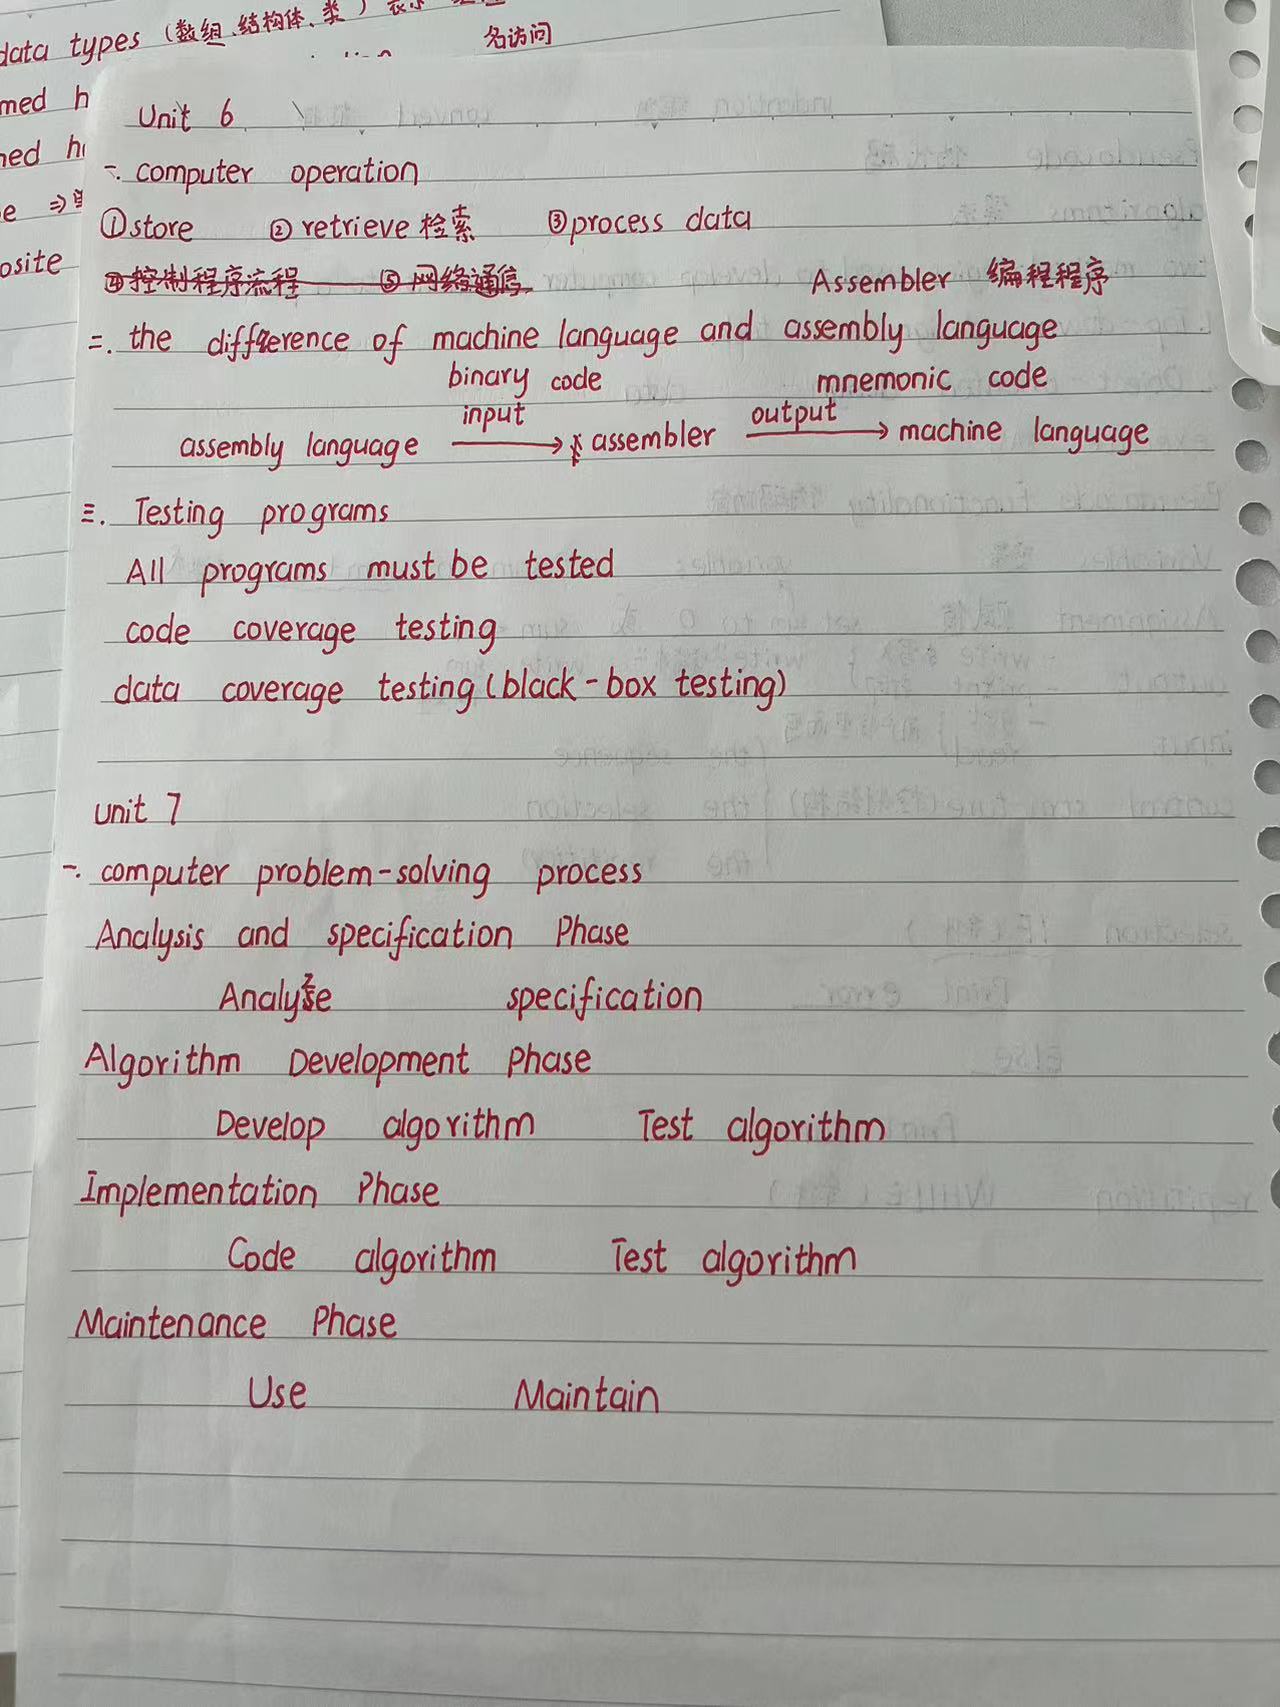 data types (数组、结构体、类) 表示
名访问
med h
ned h
e ⇒
osite
Unit 6
一. computer operation
①store ② retrieve 检索 ③process data
④控制程序流程 ⑤网络通信
Assembler 编程程序
二. the difference of machine language and assembly language
binary code mnemonic code
assembly language input→ assembler output→ machine language
三. Testing programs
All programs must be tested
code coverage testing
data coverage testing (black-box testing)
unit 7
一. computer problem-solving process
Analysis and specification Phase
Analyze specification
Algorithm Development Phase
Develop algorithm Test algorithm
Implementation Phase
Code algorithm Test algorithm
Maintenance Phase
Use Maintain